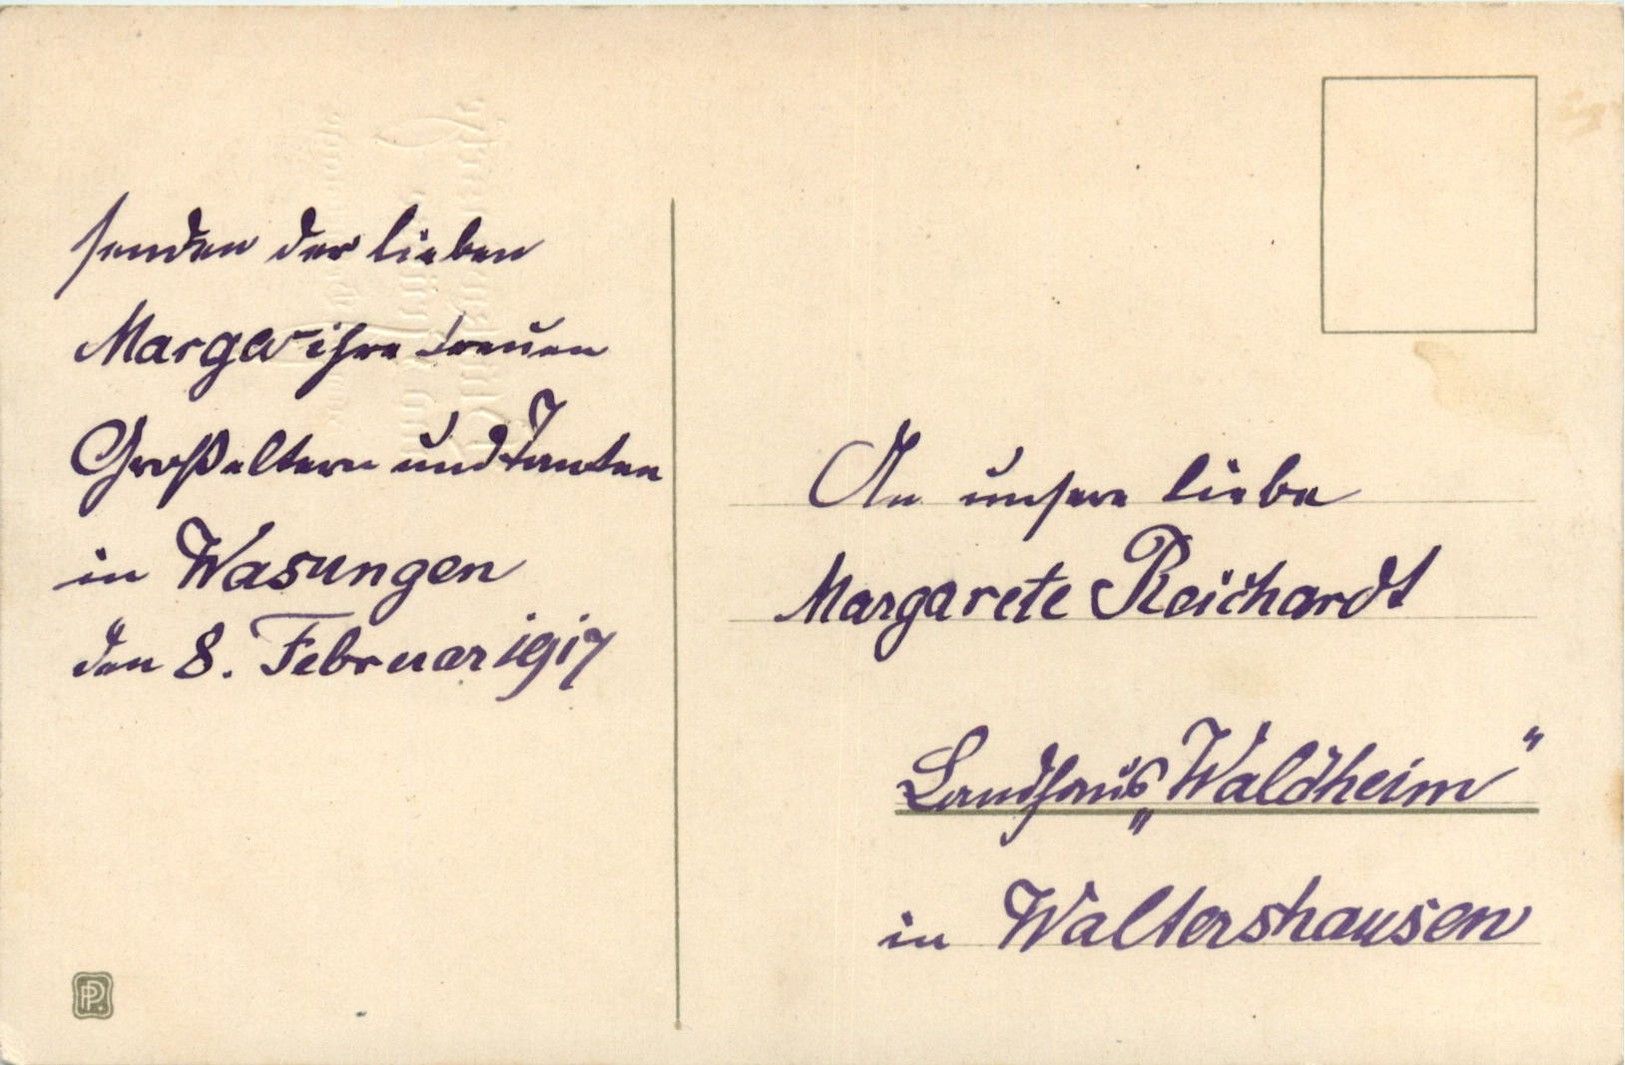 senden der lieben
Marga ihre treuen
Großeltern und Tanten
in Wasungen
den 8. Februar 1917
An unsere liebe
Margarete Reichardt
Landhaus „Waldheim"
in Waltershausen
PP.